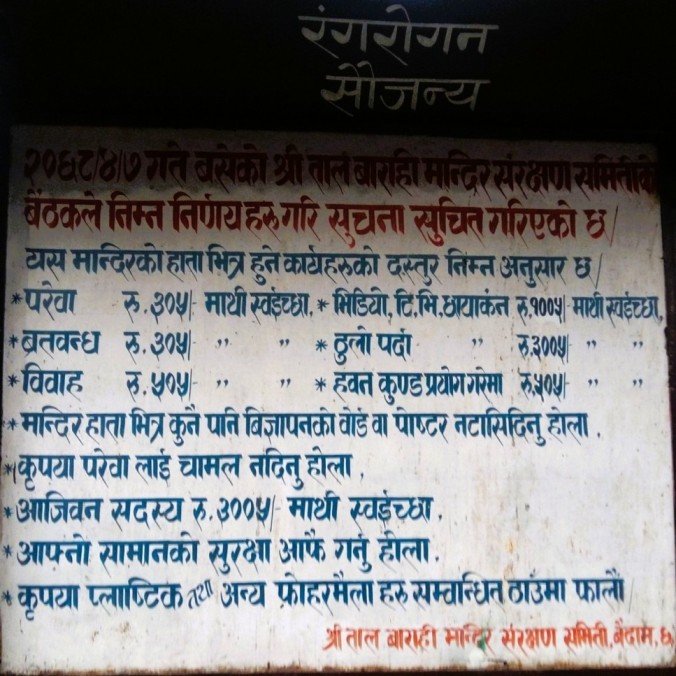 रंगरोगन
सौजन्य
२०६८/४/७ गते बसेको श्री ताल बाराही मन्दिर संरक्षण समितीको
बैठकले निम्न निर्णय हरु गरि सुचना सुचित गरिएको छ/
यस मान्दिरको हाता भित्र हुने कार्यहरुको दस्तुर निम्न अनुसार छ/
* परेवा रु. ३०५/- माथी स्वईच्छा, * भिडियो, टि.भि.छायाकंन रु.१००५/- माथी स्वईच्छा,
* ब्रतवन्ध रु. ३०५/- ,, ,, * ठुलो पर्दा ,, रु.३००५/- ,, ,,
* विवाह रु. ५०५/- ,, ,, * हवन कुण्ड प्रयोग गरेमा रु.५०५/- ,, ,,
* मन्दिर हाता भित्र कुनै पनि विज्ञापनको वोर्ड वा पोष्टर नटासिदिनु होला .
* कृपया परेवा लाई चामल नदिनु होला .
* आजिवन सदस्य रु. ३००५/- माथी स्वईच्छा .
* आफ्नो सामानको सुरक्षा आफै गर्नु होला .
* कृपया प्लाष्टिक तथा अन्य फोहरमैला हरु सम्वान्धित ठाउँमा फालौं
श्री ताल बाराही मान्दिर संरक्षण समिती, बैदाम, ६